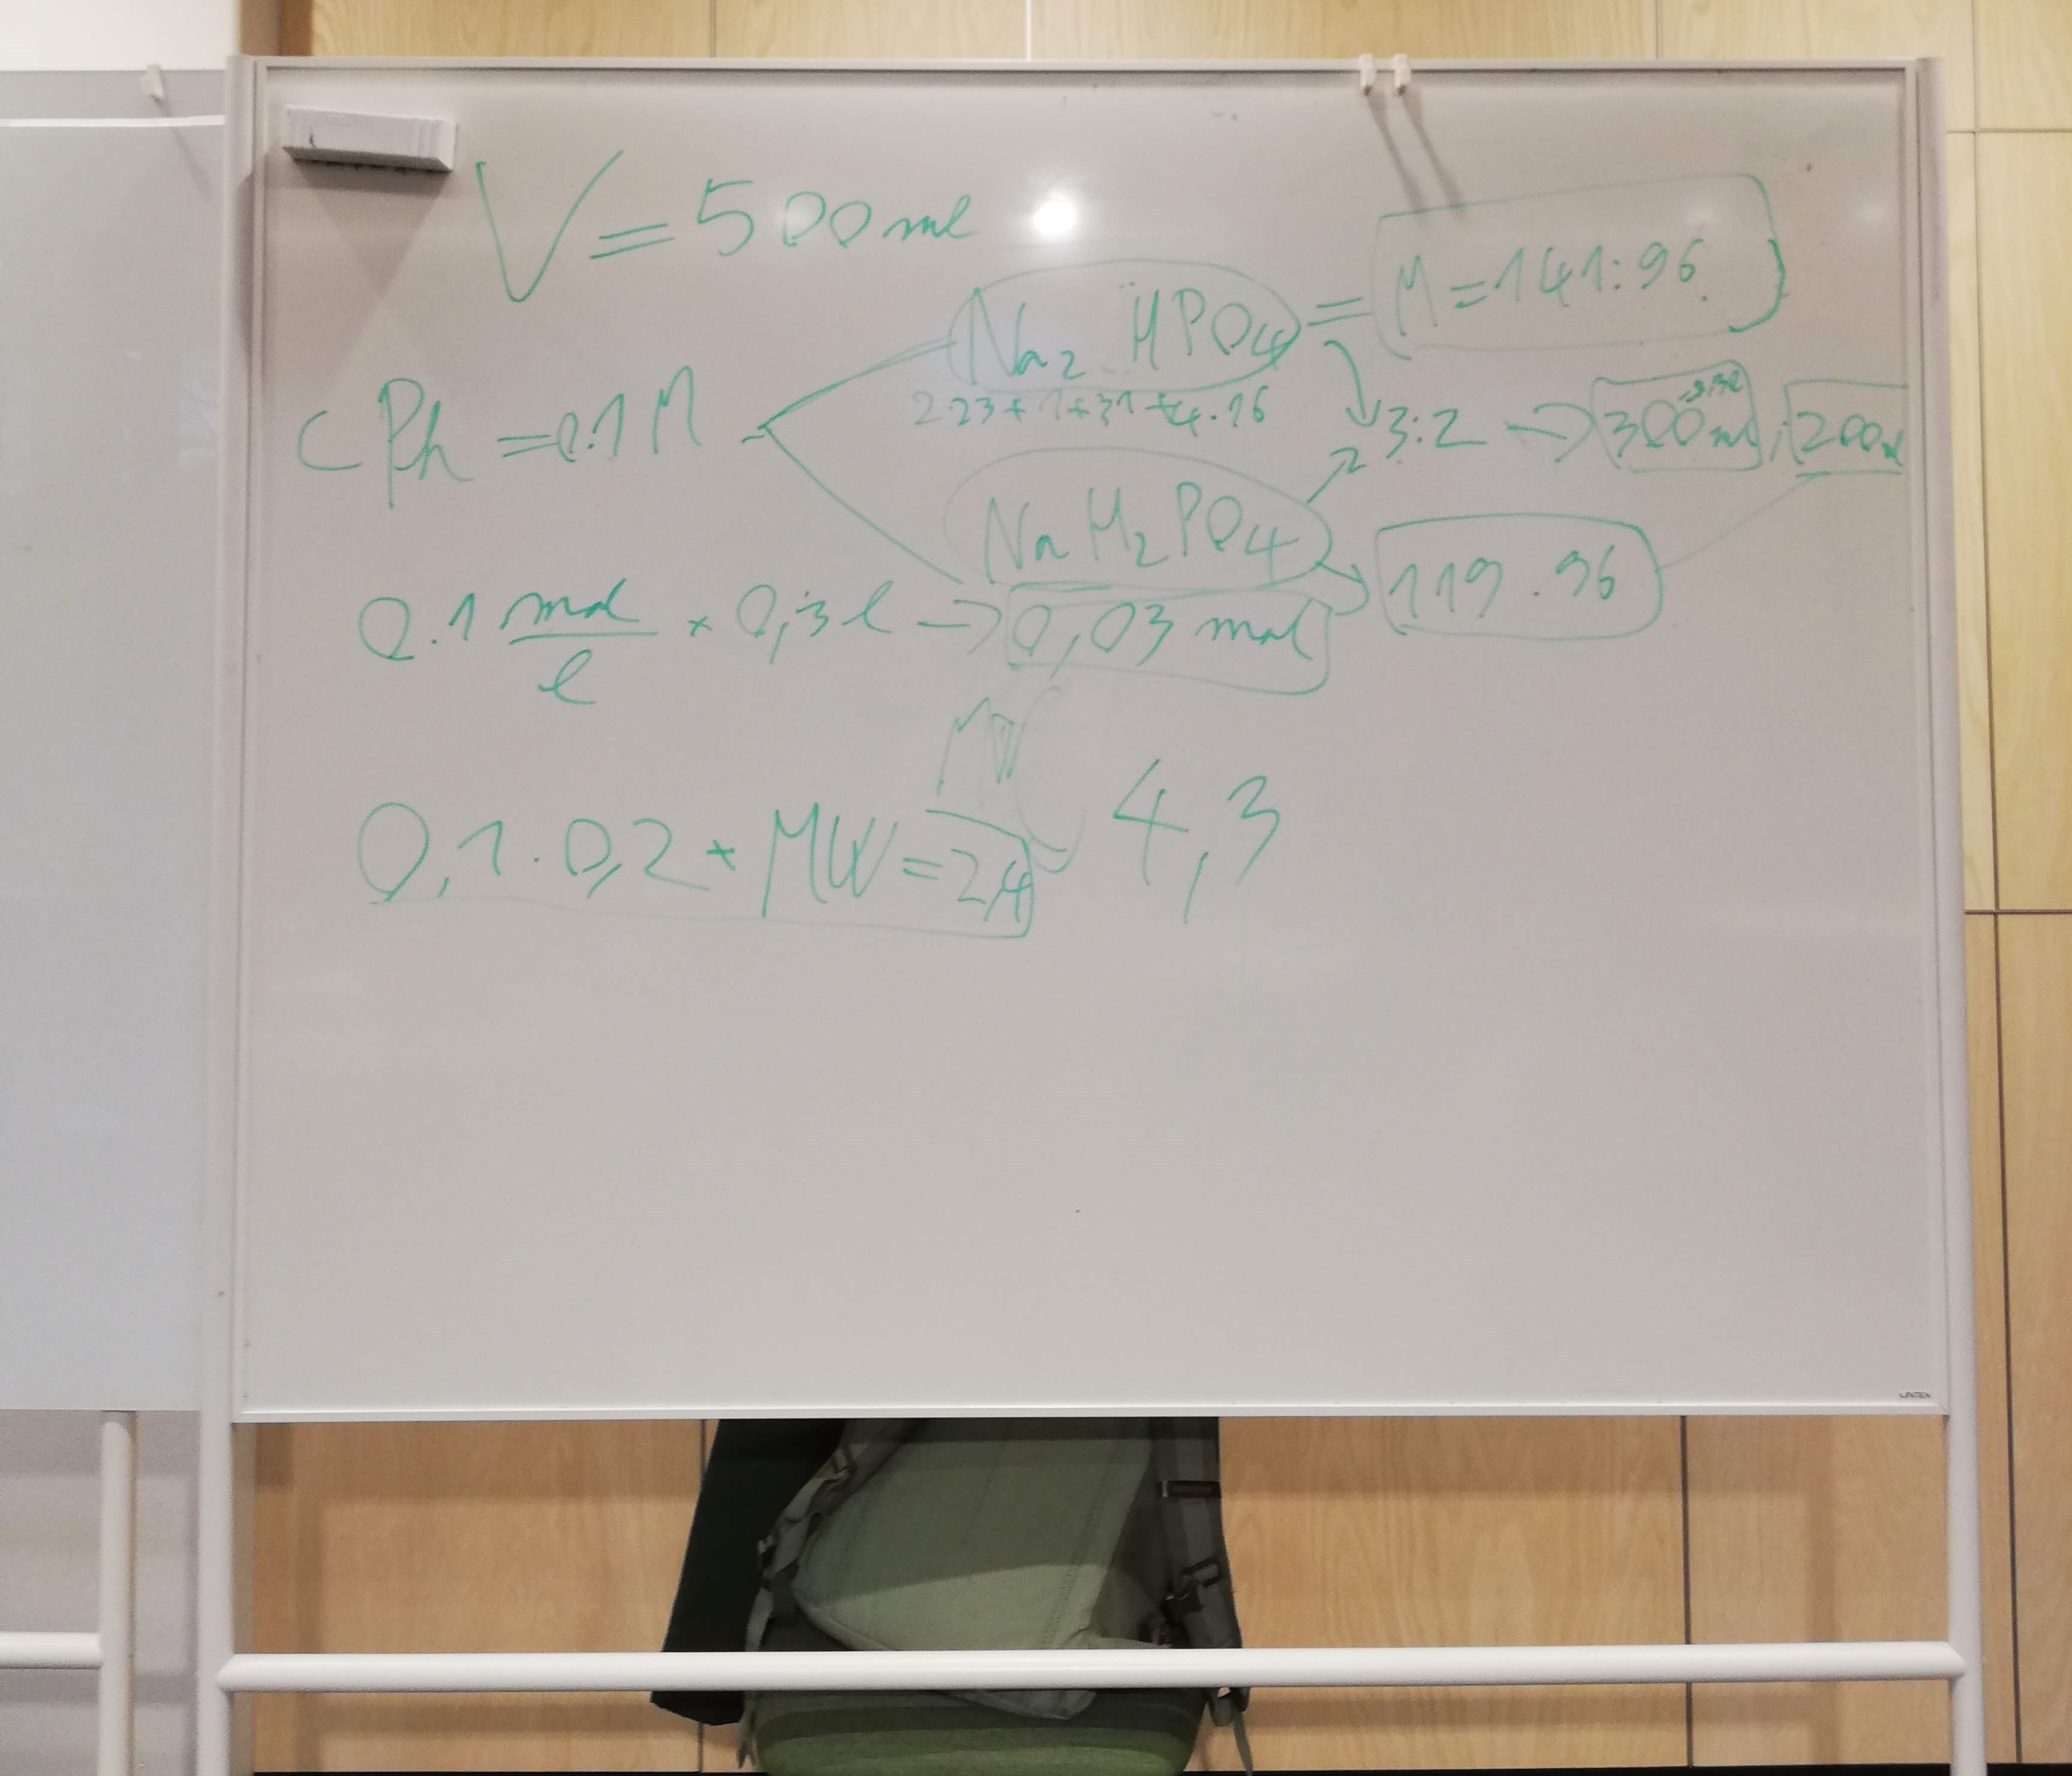 V = 500 ml
Na₂HPO₄ = M = 141.96
2·23+1+31+4·16
c Ph = 0.1 M
3:2 → 300 ml ; 200
NaH₂PO₄ → 119.96
0.1 mol/l × 0,3 l → 0,03 mol
MW
0,1·0,2 * MW = 2,4 4,3